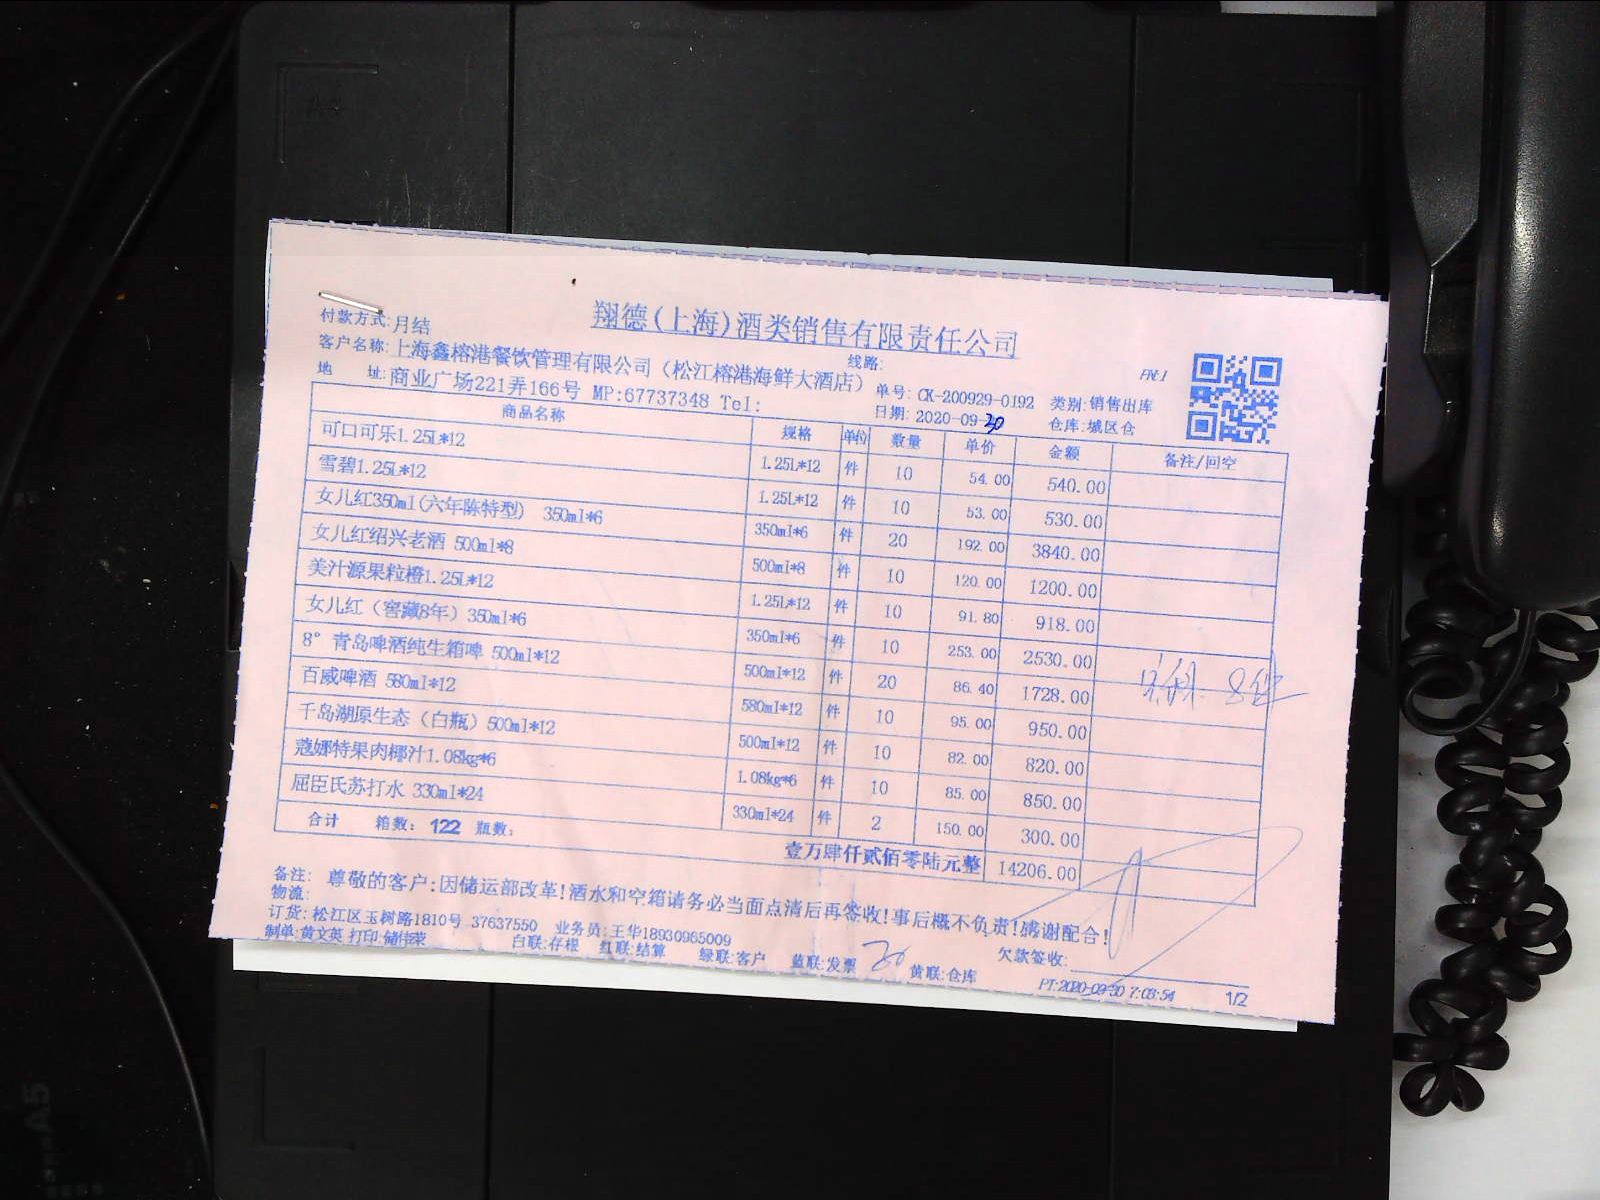 翔德(上海)酒类销售有限责任公司
付款方式:月结
线路:
客户名称:上海鑫榕港餐饮管理有限公司（松江榕港海鲜大酒店）
单号: CK-200929-0192 类别:销售出库
地 址:商业广场221弄166号 MP:67737348 Tel:
日期: 2020-09-30 仓库:城区仓
商品名称 规格 单位 数量 单价 金额 备注/回空
可口可乐1.25L*12 1.25L*12 件 10 54.00 540.00
雪碧1.25L*12 1.25L*12 件 10 53.00 530.00
女儿红350ml(六年陈特型) 350ml*6 350ml*6 件 20 192.00 3840.00
女儿红绍兴老酒 500ml*8 500ml*8 件 10 120.00 1200.00
美汁源果粒橙1.25L*12 1.25L*12 件 10 91.80 918.00
女儿红（窖藏8年）350ml*6 350ml*6 件 10 253.00 2530.00
8° 青岛啤酒纯生箱啤 500ml*12 500ml*12 件 20 86.40 1728.00
百威啤酒 580ml*12 580ml*12 件 10 95.00 950.00
千岛湖原生态（白瓶）500ml*12 500ml*12 件 10 82.00 820.00
蔻娜特果肉椰汁1.08kg*6 1.08kg*6 件 10 85.00 850.00
屈臣氏苏打水 330ml*24 330ml*24 件 2 150.00 300.00
合计 箱数: 122 瓶数: 壹万肆仟贰佰零陆元整 14206.00
备注: 尊敬的客户:因储运部改革!酒水和空箱请务必当面点清后再签收!事后概不负责!感谢配合!
物流:
订货:松江区玉树路1810号 37637550 业务员:王华18930965009
欠款签收:
制单:黄文英 打印:储佳荣 白联:存根 红联:结算 绿联:客户 蓝联:发票 黄联:仓库
PT:2020-09-30 7:03:54 1/2